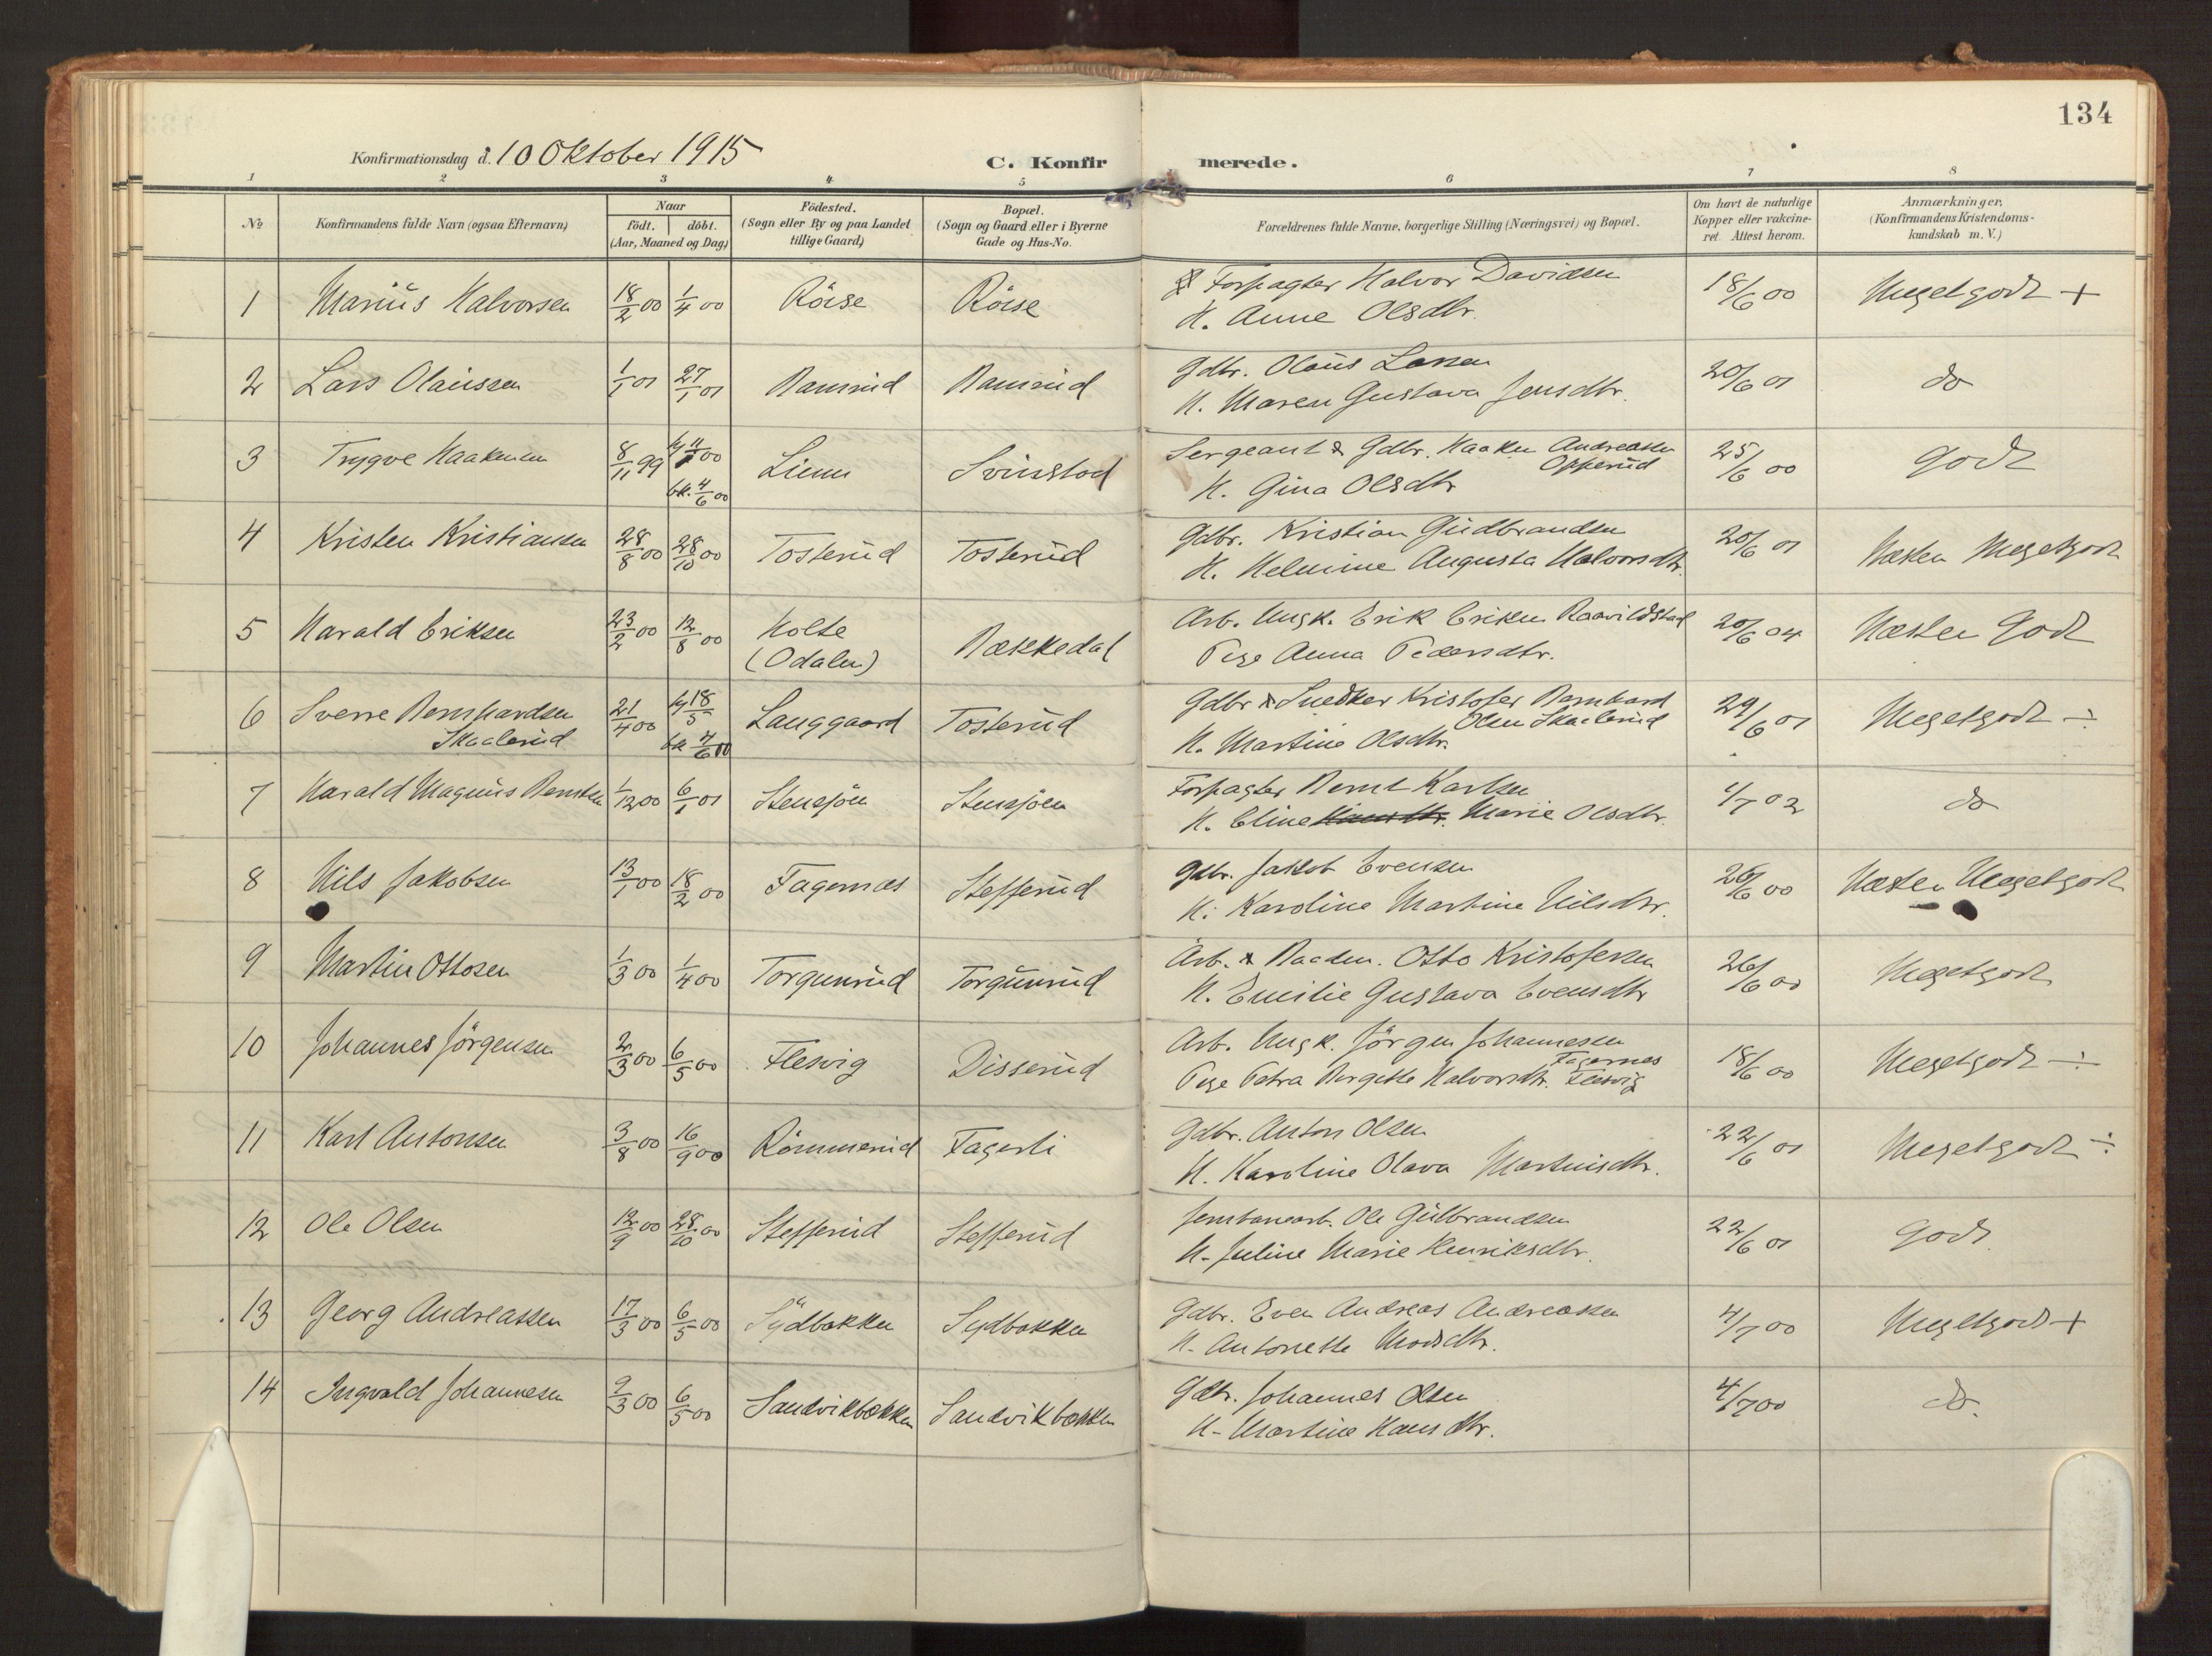 134
Konfirmationsdag d. 10 Oktober 1915
C. Konfirmerede.
1 2 3 4 5 6 7 8
No
Konfirmandens fulde Navn (ogsaa Efternavn)
Naar
født. døbt.
(Aar, Maaned og Dag)
Födested.
(Sogn eller By og paa Landet
tillige Gaard)
Bopæl.
(Sogn og Gaard eller i Byerne
Gade og Hus-No.
Forældrenes fulde Navne, borgerlige Stilling (Næringsvei) og Bopæl.
Om havt de naturlige
Kopper eller vakcine-
ret. Attest herom.
Anmærkninger.
(Konfirmandens Kristendoms-
kundskab m. V.)
1 Marius Halvorsen 18/2 00 1/4 00 Röise Röise Forpagter Halvor Davidsen
H. Anne Olsdtr. 18/6 00 Megetgodt +
2 Lars Olaussen 1/1 01 27/1 01 Ramsrud Ramsrud Gdbr. Olaus Larsen
H. Maren Gustava Jensdtr. 20/6 01 do
3 Trygve Haakensen 8/11 99 00 bk. 4/6 00 Linna Svinstad Sergeant & Gdbr. Haaken Andreassen
Opperud
H. Gina Olsdtr 25/6 00 Godt
4 Kristen Kristiansen 28/8 00 28/10 00 Tosterud Tosterud Gdbr. Kristian Gudbrandsen
H. Helmine Augusta Halvorsdtr. 20/6 01 Næsten Megetgodt
5 Harald Eriksen 23/2 00 12/8 00 Holte
(Odalen) Bækkedal Arb. Ungk. Erik Eriksen Raavildstad
Pige Anna Pedersdtr. 20/6 04 Næsten Godt
6 Sverre Bernhardsen
Skaalerud 21/4 00 18/5 bk 4/6 00 Langgaard Tosterud Gdbr & Snedker Kristofer Bernhard
Olsen Skaalerud
H. Martine Olsdtr. 29/6 01 Megetgodt ÷
7 Harald Magnus Berntsen 1/12 00 6/1 01 Stensjöen Stensjöen Forpagter Bernt Karlsen
H. Eline Marie Olsdtr. 1/7 02 do
8 Nils Jakobsen 13/1 00 18/2 00 Fagernæs Stefferud Gdbr. Jakob Evensen
H: Karoline Martine Nilsdtr. 26/6 00 Næsten Megetgodt
9 Martin Ottosen 1/3 00 1/4 00 Torgunrud Torgunrud Arb. & Baadm. Otto Kristofersen
H. Emilie Gustava Evensdtr 26/6 00 Megetgodt
10 Johannes Jörgensen 2/3 00 6/5 00 Flesvig Disserud Arb. Ungk. Jörgen Johannessen
Fagernes
Pige Petra Birgitte Halvorsdtr. Flesvig 18/6 00 Megetgodt ÷
11 Karl Antonsen 3/8 00 16/9 00 Römmerud Fagerli Gdbr. Anton Olsen
H. Karoline Olava Martinisdtr. 22/6 01 Megetgodt ÷
12 Ole Olsen 12/9 00 28/10 00 Stefferud Stefferud Jernbanearb. Ole Gulbrandsen
H. Juline Marie Henriksdtr. 22/6 01 Godt
13 Georg Andreassen 17/3 00 6/5 00 Sydbakken Sydbakken Gdbr. Even Andreas Andreassen
H. Antonette Modsdtr. 4/7 00 Megetgodt +
14 Ingvald Johannesen 9/3 00 6/5 00 Sandvikbakken Sandvikbakken Gdbr. Johannes Olsen
H. Martine Hansdtr. 4/7 00 do.